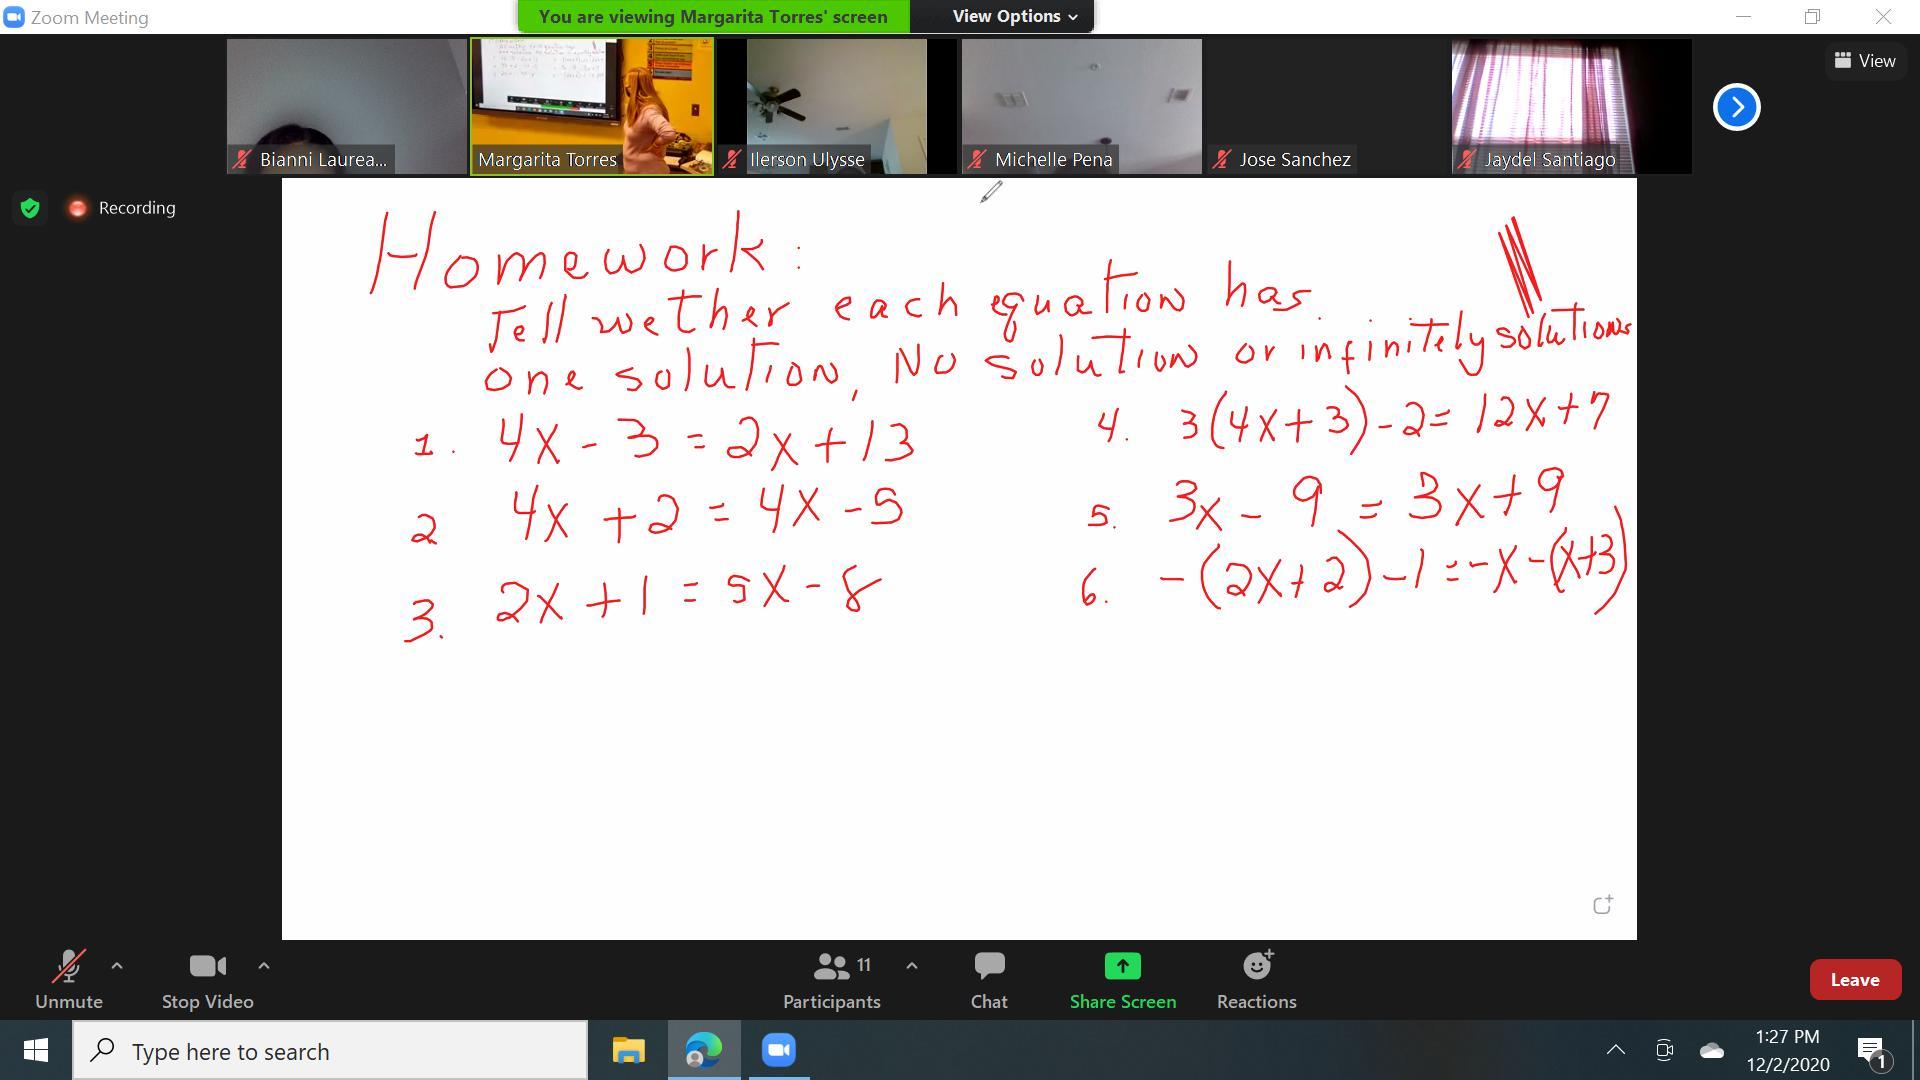 Zoom Meeting
You are viewing Margarita Torres' screen
View Options
View
Bianni Laurea...
Margarita Torres
Ilerson Ulysse
Michelle Pena
Jose Sanchez
Jaydel Santiago
Recording
Homework:
Tell wether each equation has
one solution, No solution or infinitely solutions
1. 4x - 3 = 2x + 13
2 4x + 2 = 4x - 5
3. 2x + 1 = 5x - 8
4. 3(4x + 3) - 2 = 12x + 7
5. 3x - 9 = 3x + 9
6. -(2x + 2) - 1 = -x - (x + 3)
Unmute
Stop Video
11
Participants
Chat
Share Screen
Reactions
Leave
Type here to search
1:27 PM
12/2/2020
1